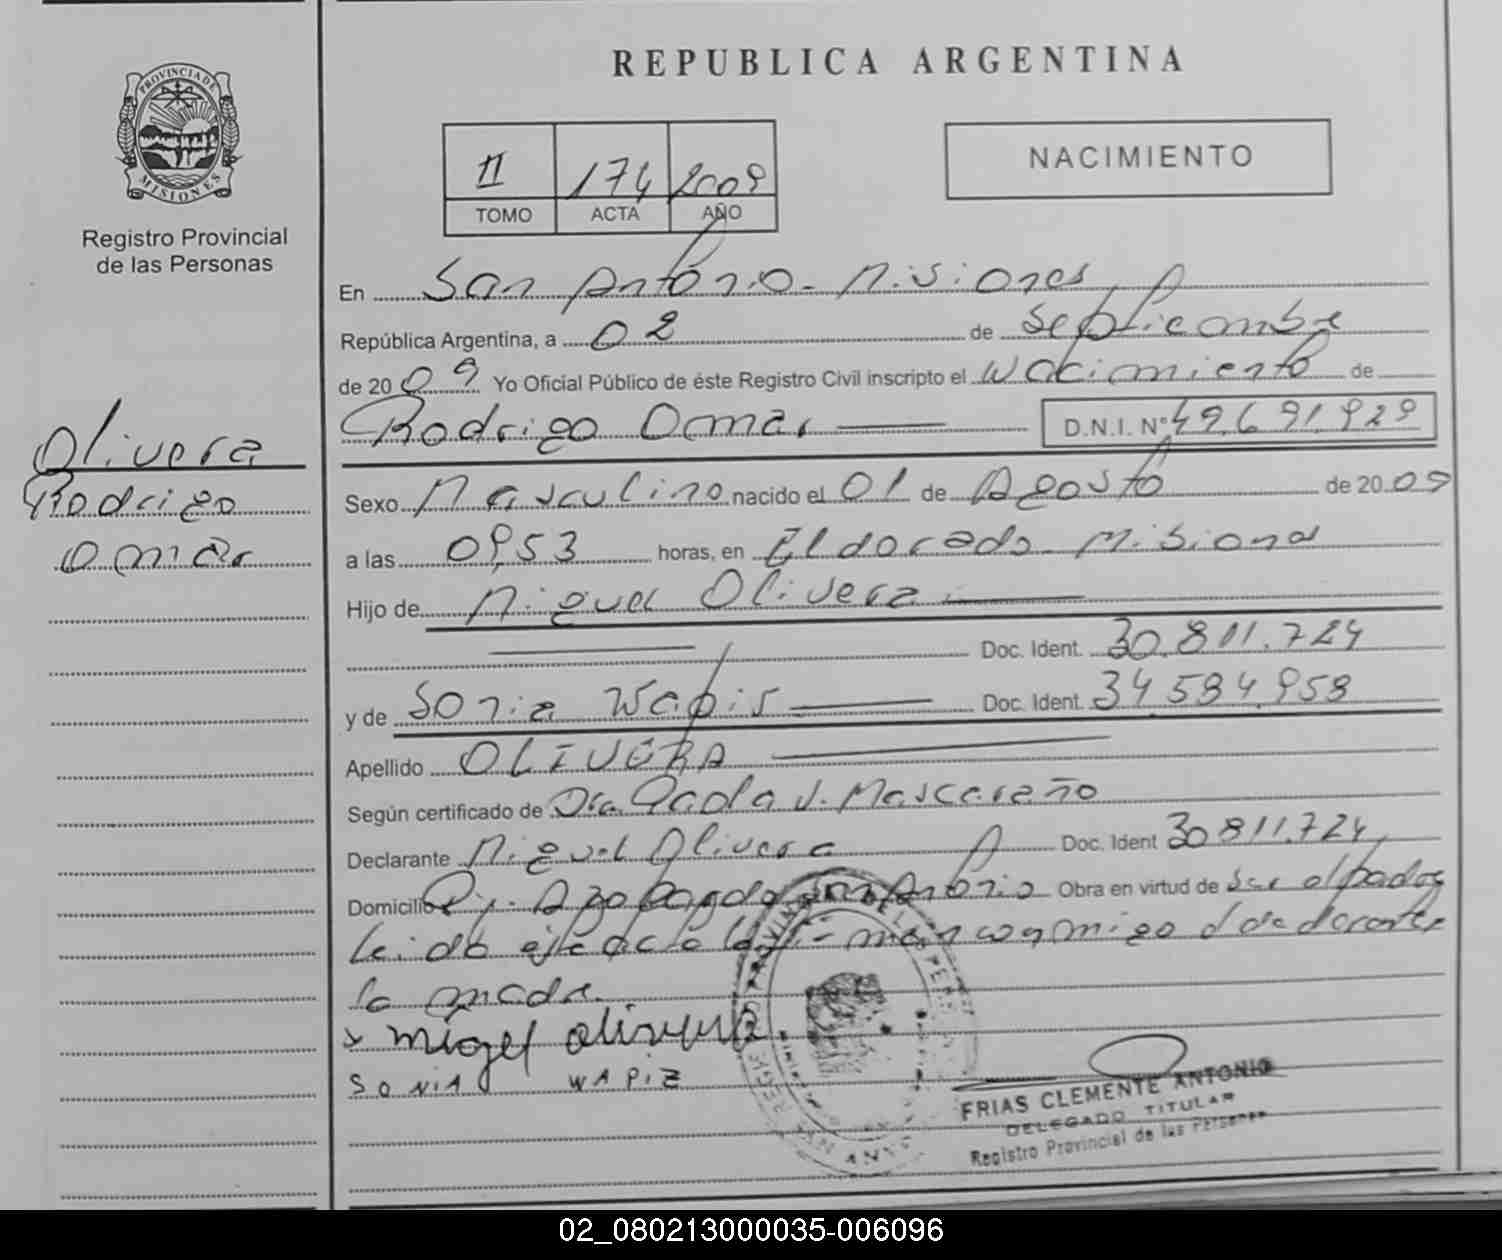 REPUBLICA ARGENTINA
PROVINCIA DE
MISIONES
Registro Provincial
de las Personas
II 174 2009
TOMO ACTA AÑO
NACIMIENTO
Olivera
Rodrigo
Omar
En San Antonio - Misiones
República Argentina, a 02 de Septiembre
de 2009 Yo Oficial Público de éste Registro Civil inscripto el Nacimiento de
Rodrigo Omar D.N.I. Nº 49.691.929
Sexo Masculino nacido el 01 de Agosto de 2009
a las 09,53 horas, en Eldorado Misiones
Hijo de Miguel Olivera
Doc. Ident. 30.811.724
y de Sonia Wapis Doc. Ident. 34584958
Apellido OLIVERA
Según certificado de Dra. Paola V. Mascareño
Declarante Miguel Olivera Doc. Ident 30811.724
Domicilio San Antonio Obra en virtud de ser el padre
leido el acta la firman conmigo el declarante
la madre
x miguel olivera
SONIA WAPIZ
FRIAS CLEMENTE ANTONIO
DELEGADO TITULAR
Registro Provincial de las Personas
02_080213000035-006096